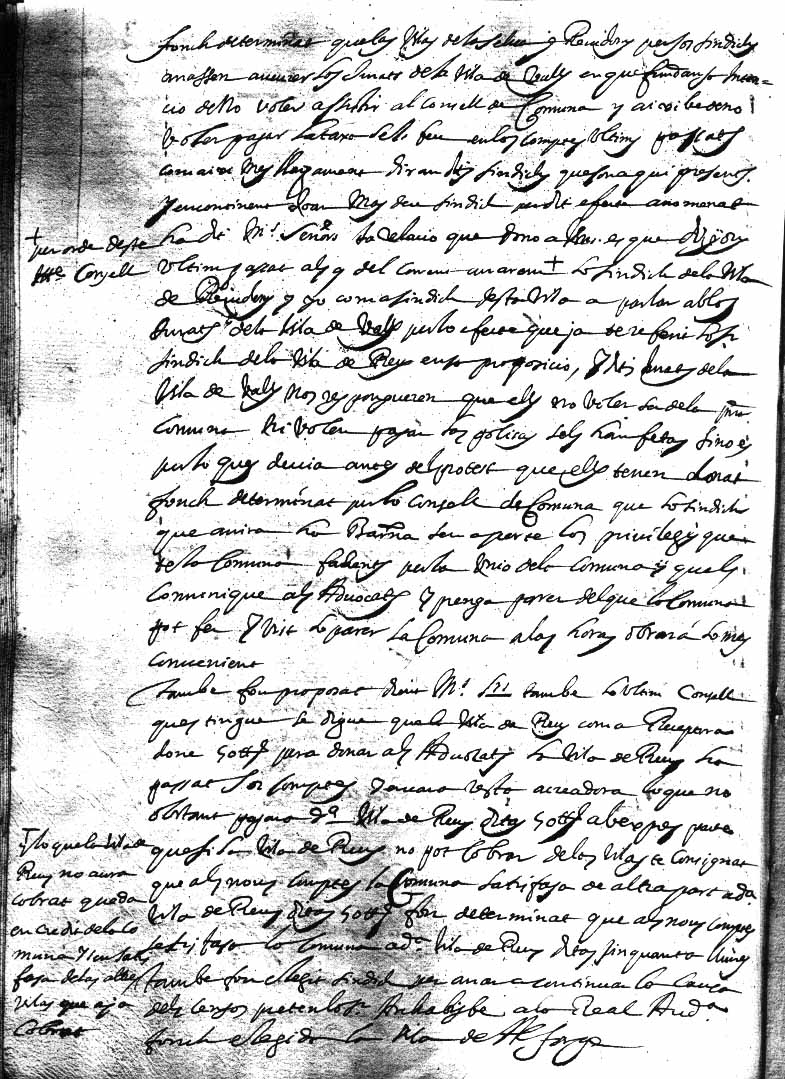 fonch determinat que las Vilas de la Selva y Riudoms per sos sindichs
anassen a veurer los Jurats de la Vila de Valls en que fundan sa Inten=
cio de No voler assistir al Consell de Comuna y axi be de no
Voler pagar la taxa se ls feu en los comptes Ultims passats
com aixi Mes llargament diran dits sindichs que son aqui presents.
Y encontinent Joan Mas deu sindich per dit efecte anomenat
ha dit M.s Senors la relacio que dono a Vms. es que dijous
Ultim passat als 9 del corrent anarem + lo sindich de la Vila
de Riudoms y yo com a sindich desta Vila a parlar ab los
Jurats de la Vila de Valls per lo efecte que ja te referit lo Sr
sindich de la Vila de Reus en sa proposicio, Y dits Jurats de la
Vila de Valls Nos respongueren que ells no Volen sa de la
Comuna Ni Volen pagar las polisas sels han fetas sino es
per lo ques devia antes del protest que ells tenen donat
fonch determinat per lo Consell de Comuna que lo sindich
que anira ha Barna sen aporte los privilegis que
te la Comuna fahents per la Unio de la Comuna y quels
Comunique als Advocats Y prenga parer del que la Comuna
pot fer Y Vist lo parer la Comuna a las horas obrará lo mes
convenient
tambe fou proposat dient M.s Srs tambe lo Ultim Consell
ques tingue se digue que la Vila de Reus com a
done 50 ₶ pera donar als Advocats la Vila de Reus ha
passat sos comptes Y encara resta acreadora lo que no
obstant pagara d.a Vila de Reus ditas 50 ₶ ab expres pacte
que si la Vila de Reus no pot Cobrar de las Vilas te Consignat
que als nous comptes la Comuna satisfasa de altra part a d.a
Vila de Reus ditas 50 ₶ fou determinat que als nous comptes
satisfasa la Comuna a d.a Vila de Reus ditas sinquanta lliures
tambe fou elegit sindich per anar a continuar la causa
dels censos preten lo Sr. Archabisbe a la Real Aud.a
fonch elegida la Vila de Alforja
+ per orde deste
Itte Consell
+ lo que la Vila de
Reus no aura
cobrat queda
en credit de la Co
muna Y sen satis
fasa de las altres
Vilas que aja
Cobrat